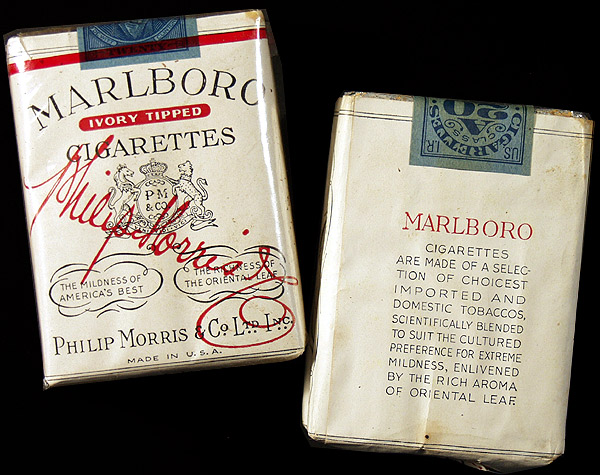 TWENTY
MARLBORO
IVORY TIPPED
CIGARETTES
P·M
& CO
Philip Morris & Co
THE MILDNESS OF
AMERICA'S BEST
THE RICHNESS OF
THE ORIENTAL LEAF
PHILIP MORRIS & CO. LTD. INC.
MADE IN U.S.A.
20
CIGARETTES
U.S. I.R.
MARLBORO
CIGARETTES
ARE MADE OF A SELEC-
TION OF CHOICEST
IMPORTED AND
DOMESTIC TOBACCOS,
SCIENTIFICALLY BLENDED
TO SUIT THE CULTURED
PREFERENCE FOR EXTREME
MILDNESS, ENLIVENED
BY THE RICH AROMA
OF ORIENTAL LEAF.